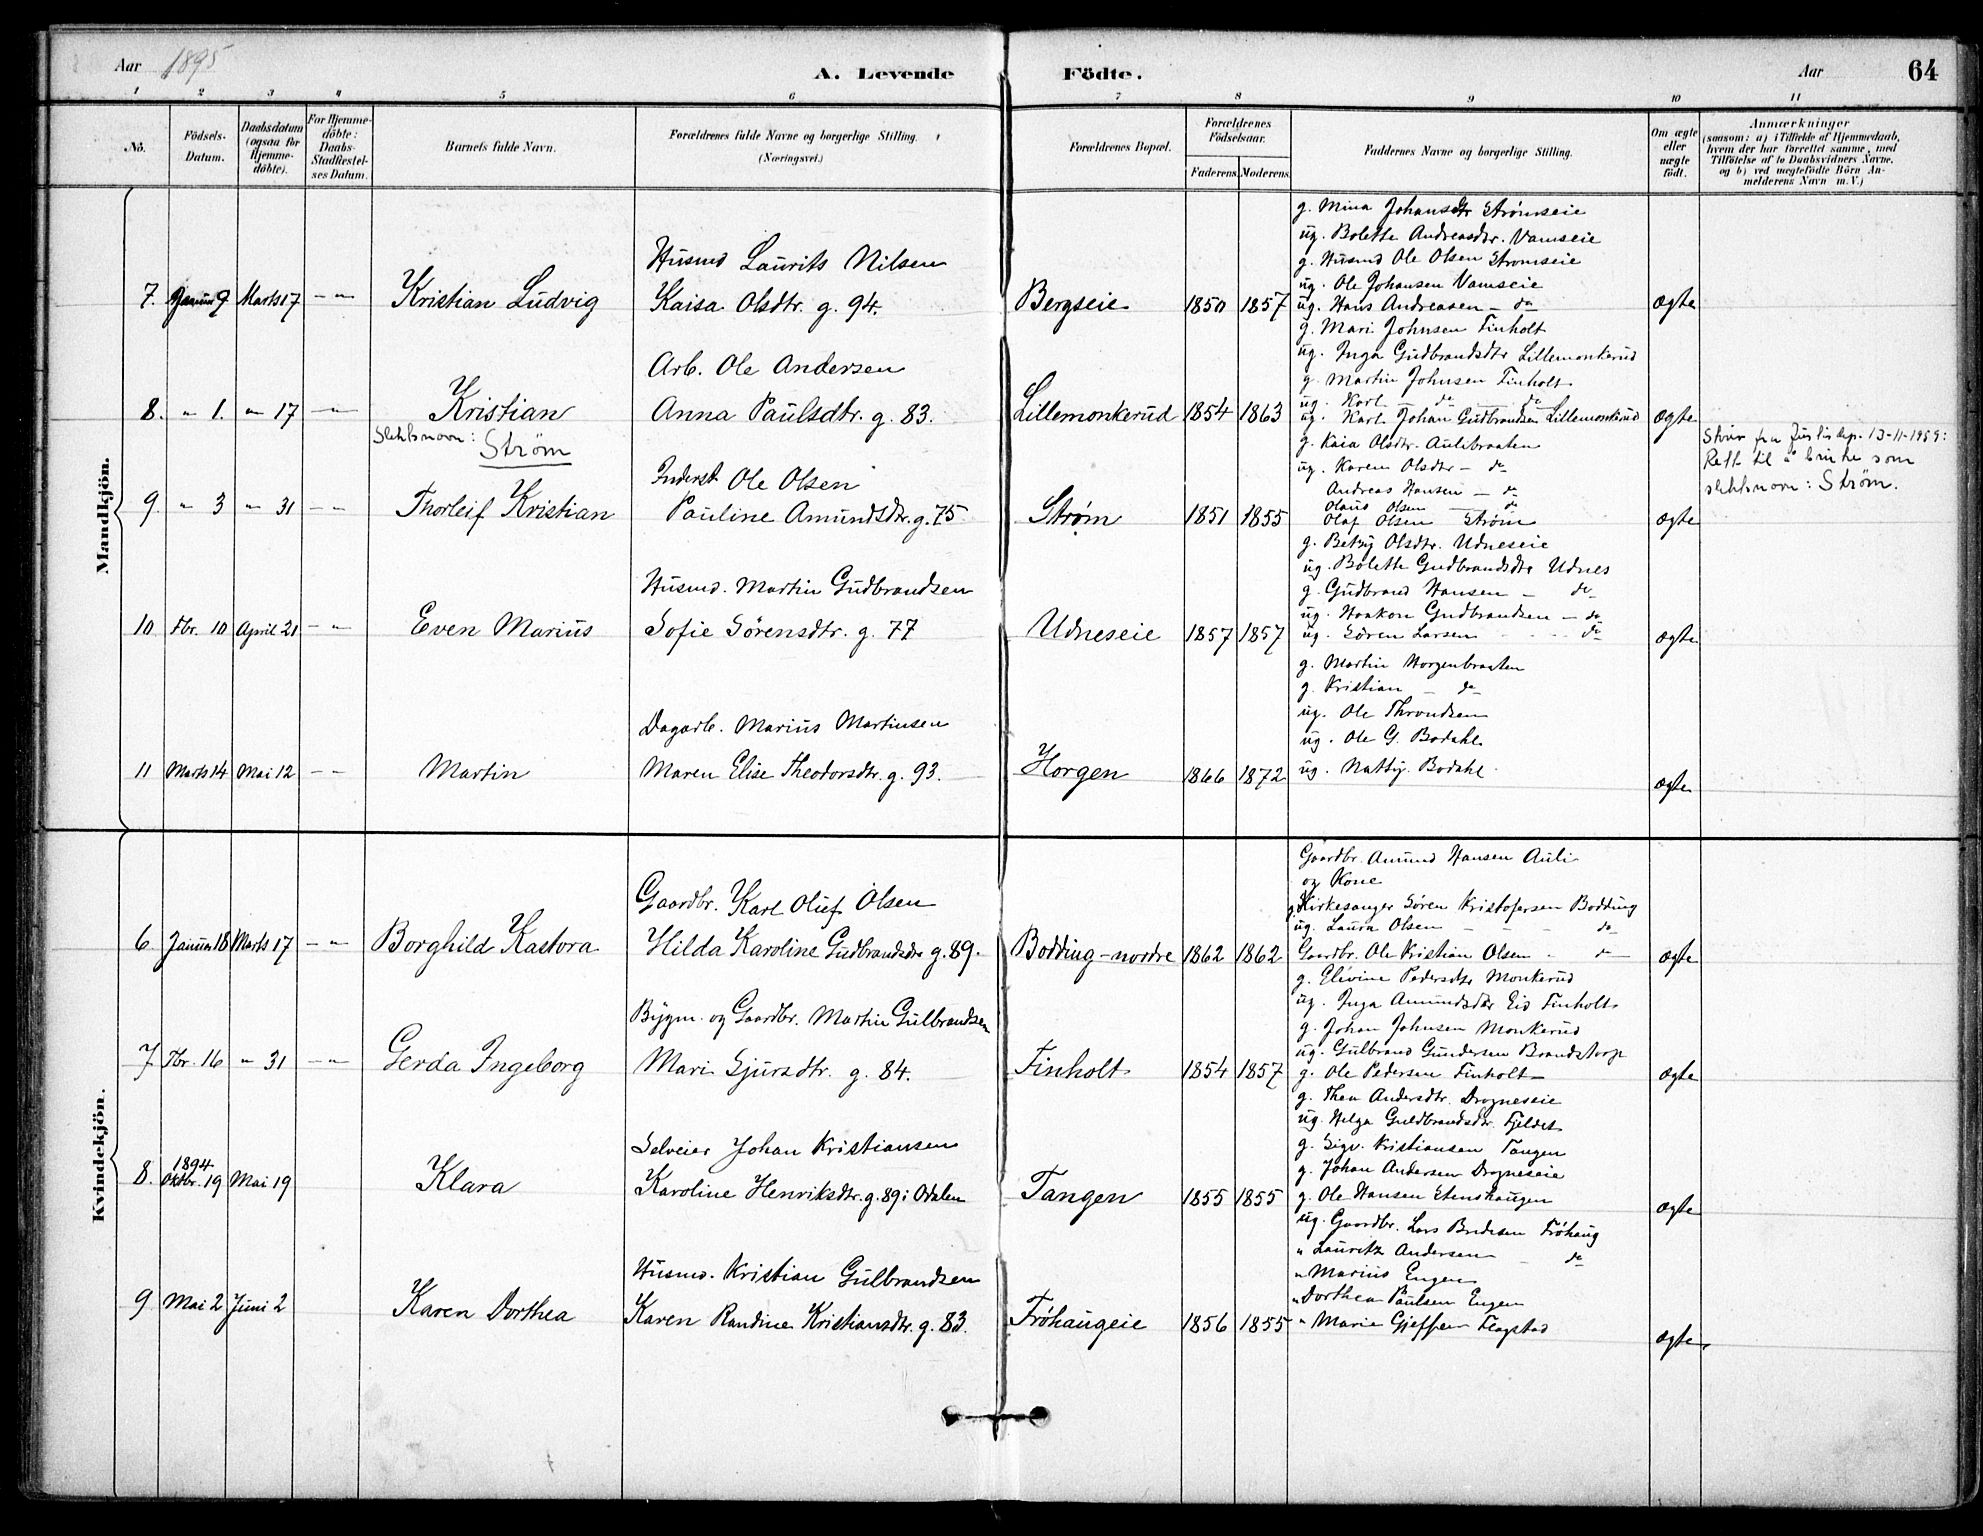 Aar 1895
A. Levende Födte.
Aar
64
1 2 3 4 5 6 7 8 9 10 11
No.
Födsels-Datum.
Daabsdatum (ogsaa for Hjemme-döbte).
For Hjemme-döbte: Daabs-Stadfæstel-ses Datum.
Barnets fulde Navn.
Forældrenes fulde Navne og borgerlige Stilling. (Næringsvei.)
Forældrenes Bopæl.
Forældrenes Födselsaar.
Faderens. Moderens.
Faddernes Navne og borgerlige Stilling.
Om ægte eller uægte födt.
Anmærkninger
(saasom: a) i Tilfælde af Hjemmedaab,
hvem der har forrettet samme, med
Tilföielse af to Daabsvidners Navne.
og b) ved uægtefödte Börn An-
melderens Navn m. V.)
Mandkjön.
7. Januar 9 Marts 17 – „ – Kristian Ludvig
Husmd Laurits Nilsen
Kaisa Olsdtr. g. 94.
Bergseie 1850 1857
g. Mina Johansdtr Strømseie
ug. Bolette Andreasdtr. Vamseie
g. Husmd Ole Olsen Strømseie
ug. Ole Johansen Vamseie
ug. Hans Andreasen – do
ægte
8. „ 1. „ 17 – „ – Kristian
Arb. Ole Andersen
Anna Paulsdtr. g. 83.
Lillemonkerud 1854 1863
g. Mari Johnsen Finholt
ug. Inga Gudbrandsdtr Lillemonkerud
g. Martin Johnsen Finholt
ug. Karl do do
ug. Karl Johan Gudbrandsen Lillemonkerud
ægte
slektsnavn: Strøm
9. „ 3 „ 31 – „ – Thorleif Kristian
Inderst Ole Olsen
Pauline Amundsdtr. g. 75
Strøm 1851 1855
g. Kaia Olsdtr. Aulibraaten
ug. Karen Olsdtr – do
Andreas Hansen – do
Olaus Olsen do
Olaf Olsen Strøm
ægte
Skriv fra Justisdep. 13-11-1959:
Rett til å bruke som
slektsnavn: Strøm.
10. Fbr. 10 April 21 – „ – Even Marius
Husmd. Martin Gudbrandsen
Sofie Sørensdtr. g. 77
Udneseie 1857 1857
g. Betsy Olsdtr. Udneseie
ug. Bolette Gudbrandsdtr Udnes
g. Gudbrand Hansen – do
ug. Haakon Gudbrandsen – do
ug. Søren Larsen do
ægte
11 Marts 14 Mai 12 – – Martin
Dagarb. Marius Martinsen
Maren Elise Theodorsdtr. g. 93.
Horgen 1866 1872
g. Martin Horgenbraaten
g. Kristian – do
ug. Ole Throndsen
ug. Ole G. Bodahl
ug. Bodahl
ægte
Kvindekjön.
6. Januar 18 Marts 17 – „ – Borghild Kastora
Gaardbr. Karl Oluf Olsen
Hilda Karoline Gudbrandsdtr g. 89.
Bodding-nordre 1862 1862
Gaardbr. Amund Hansen Auli
og Kone
g. Kirkesanger Søren Kristofersen Bodding
ug. Laura Olsen – – – do
Gaardbr. Ole Kristian Olsen do
ægte
7. Fbr. 16 „ 31 – „ – Gerda Ingeborg
Bygm. og Gaardbr. Martin Gulbrandsen
Mari Sjursdtr. g. 84.
Finholt 1854 1857
g. Elevine Pedersdtr Monkerud
ug. Inga Amundsdtr Eid Finholt
g. Johan Johnsen Monkerud
ug. Gulbrand Gundersen Brandstorp
g. Ole Pedersen Finholt
ægte
8. 1894 Oktbr. 19 Mai 19 Klara
Selveier Johan Kristiansen
Karoline Henriksdtr. g. 89 i Odalen
Tangen 1855 1855
g. Thea Andersdtr. Drogneseie
ug. Helga Guldbrandsdtr. Fjeldet
g. Sigv. Kristiansen Tangen
g. Johan Andersen Drogneseie
g. Ole Hansen Stenshaugen
ægte
9 Mai 2 Juni 2 Karen Dorthea
Husmd. Kristian Gulbrandsen
Karen Randine Kristiansdtr. g. 83.
Frøhaugeie 1856 1855
ug. Gaardbr. Lars Bredesen Frøhaug
„ Lauritz Andersen – do
„ Marius Engen
„ Dorthea Paulsen Engen
„ Marie Flagstad
ægte.